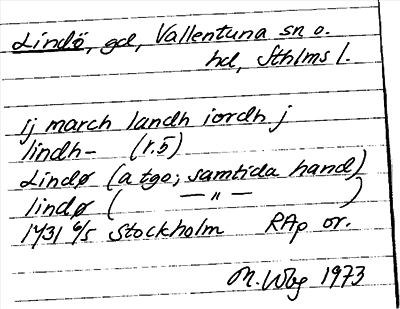 Lindö, gd, Vallentuna sn o.
hd, Sthlms l.
ij march landh iordh j
lindh- (r.5)
Lindø (a tgo; samtida hand)
lindø ( — " — )
1431 6/5 Stockholm RAp or.
M. Wbg 1973